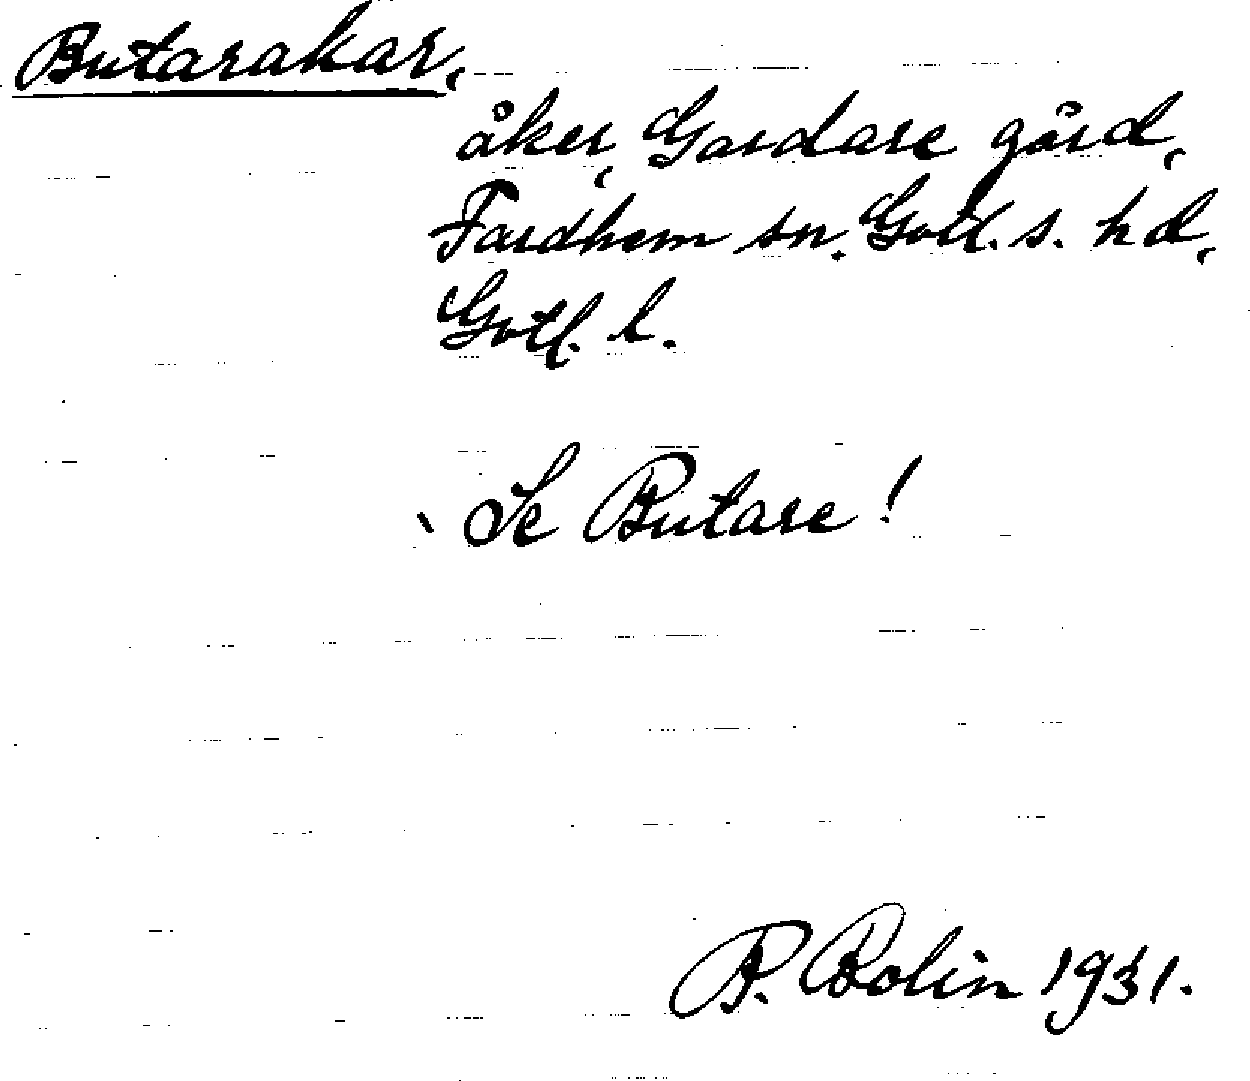 Butarakar,
åker, Gardare gård,
Fardhem sn. Gotl. s. hd,
Gotl. l.
Se Butare!
P. Bolin 1931.